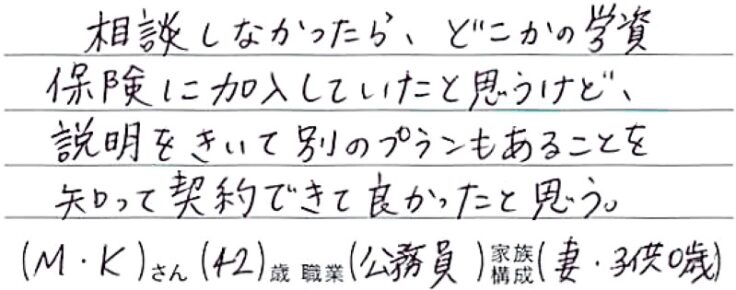 相談しなかったら、どこかの学資
保険に加入していたと思うけど、
説明をきいて別のプランもあることを
知って契約できて良かったと思う。
(M・K)さん(42)歳 職業(公務員)家族構成(妻・子供0歳)